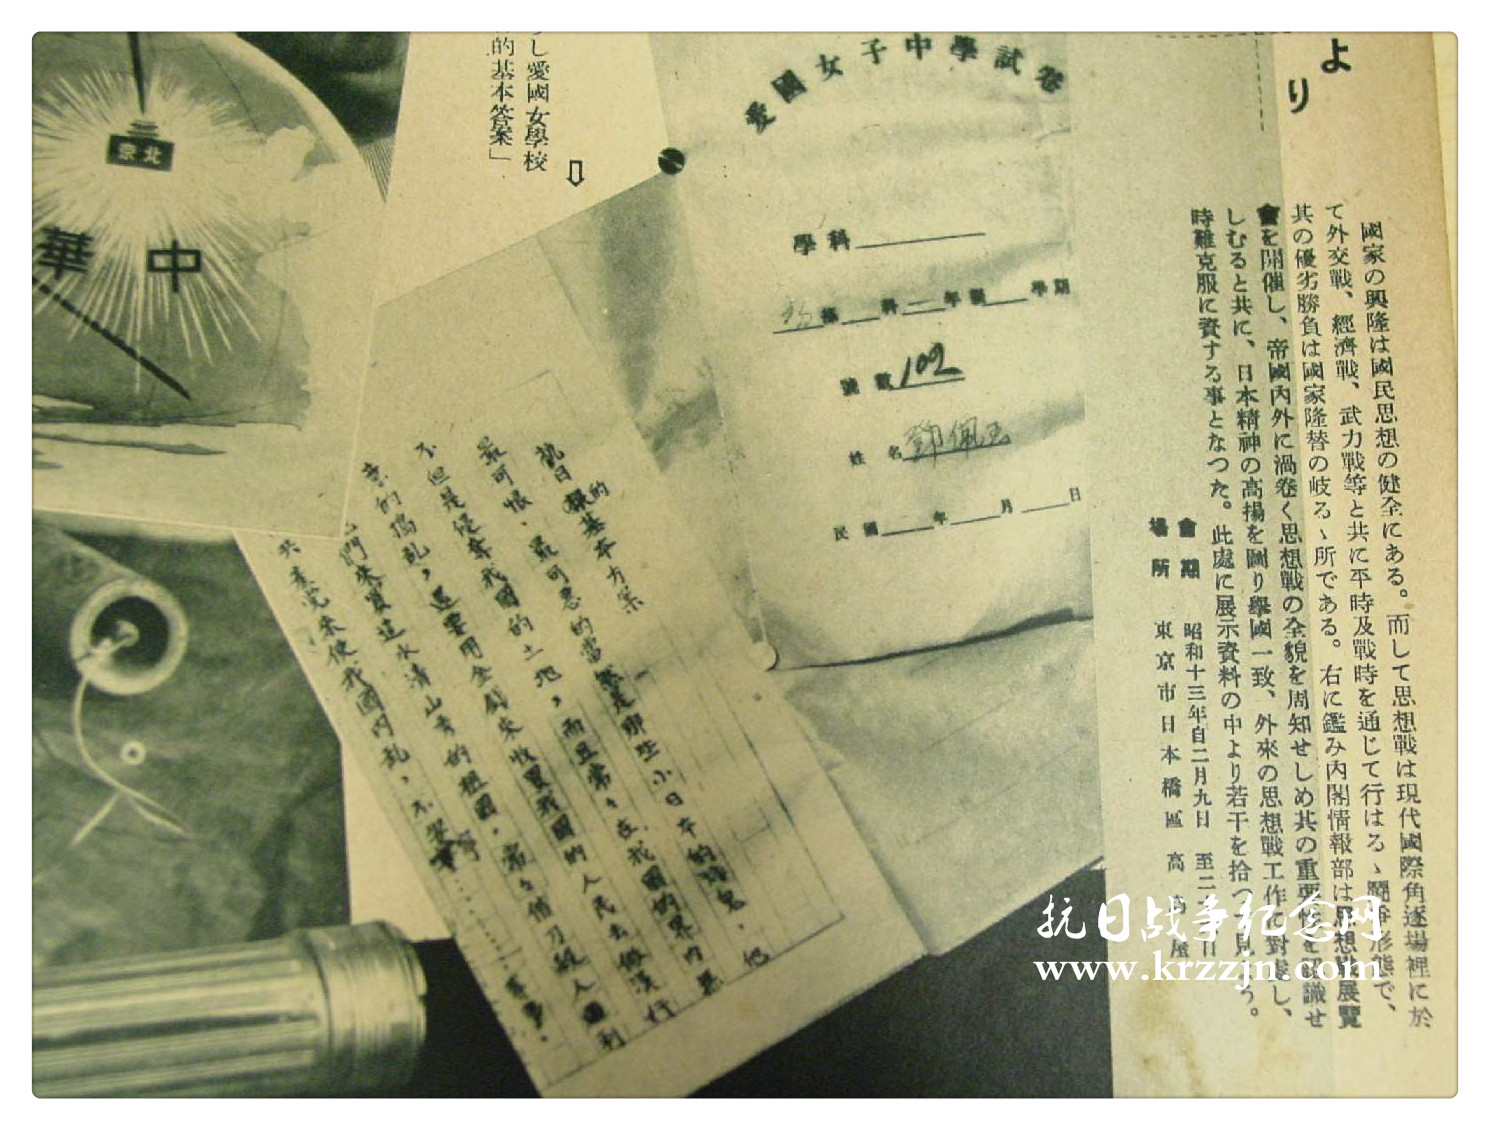 より
國家の興隆は國民思想の健全にある。而して思想戰は現代國際角逐場裡に於
て外交戰、經濟戰、武力戰等と共に平時及戰時を通じて行はるゝ鬪爭形態で、
其の優劣勝負は國家隆替の岐るゝ所である。右に鑑み内閣情報部は思想戰展覽
會を開催し、帝國内外に渦卷く思想戰の全貌を周知せしめ其の重要性を認識せ
しむると共に、日本精神の高揚を圖り擧國一致、外來の思想戰工作に對處し、
時難克服に資する事となつた。此處に展示資料の中より若干を拾つて見よう。
會期 昭和十三年自二月九日 至二
場所 東京市日本橋區 高島屋
愛國女子中學試卷
學科
科 年級 學期
號數 102
姓名 鄧佩玉
民國 年 月 日
し愛國女學校
的基本答案」
⇩
抗日的基本方案
最可恨、最可惡的當然是那些小日本的 鬼、他
不但是侵奪我國的土地,而且常々在我國的界内
的搗亂,還要用金錢來收買我國的人民去做漢
們來賣這水清山秀的祖國,常々借刀殺人
共產党來使我國内乱,不
北京
中華
抗日战争纪念网
www.krzzjn.com